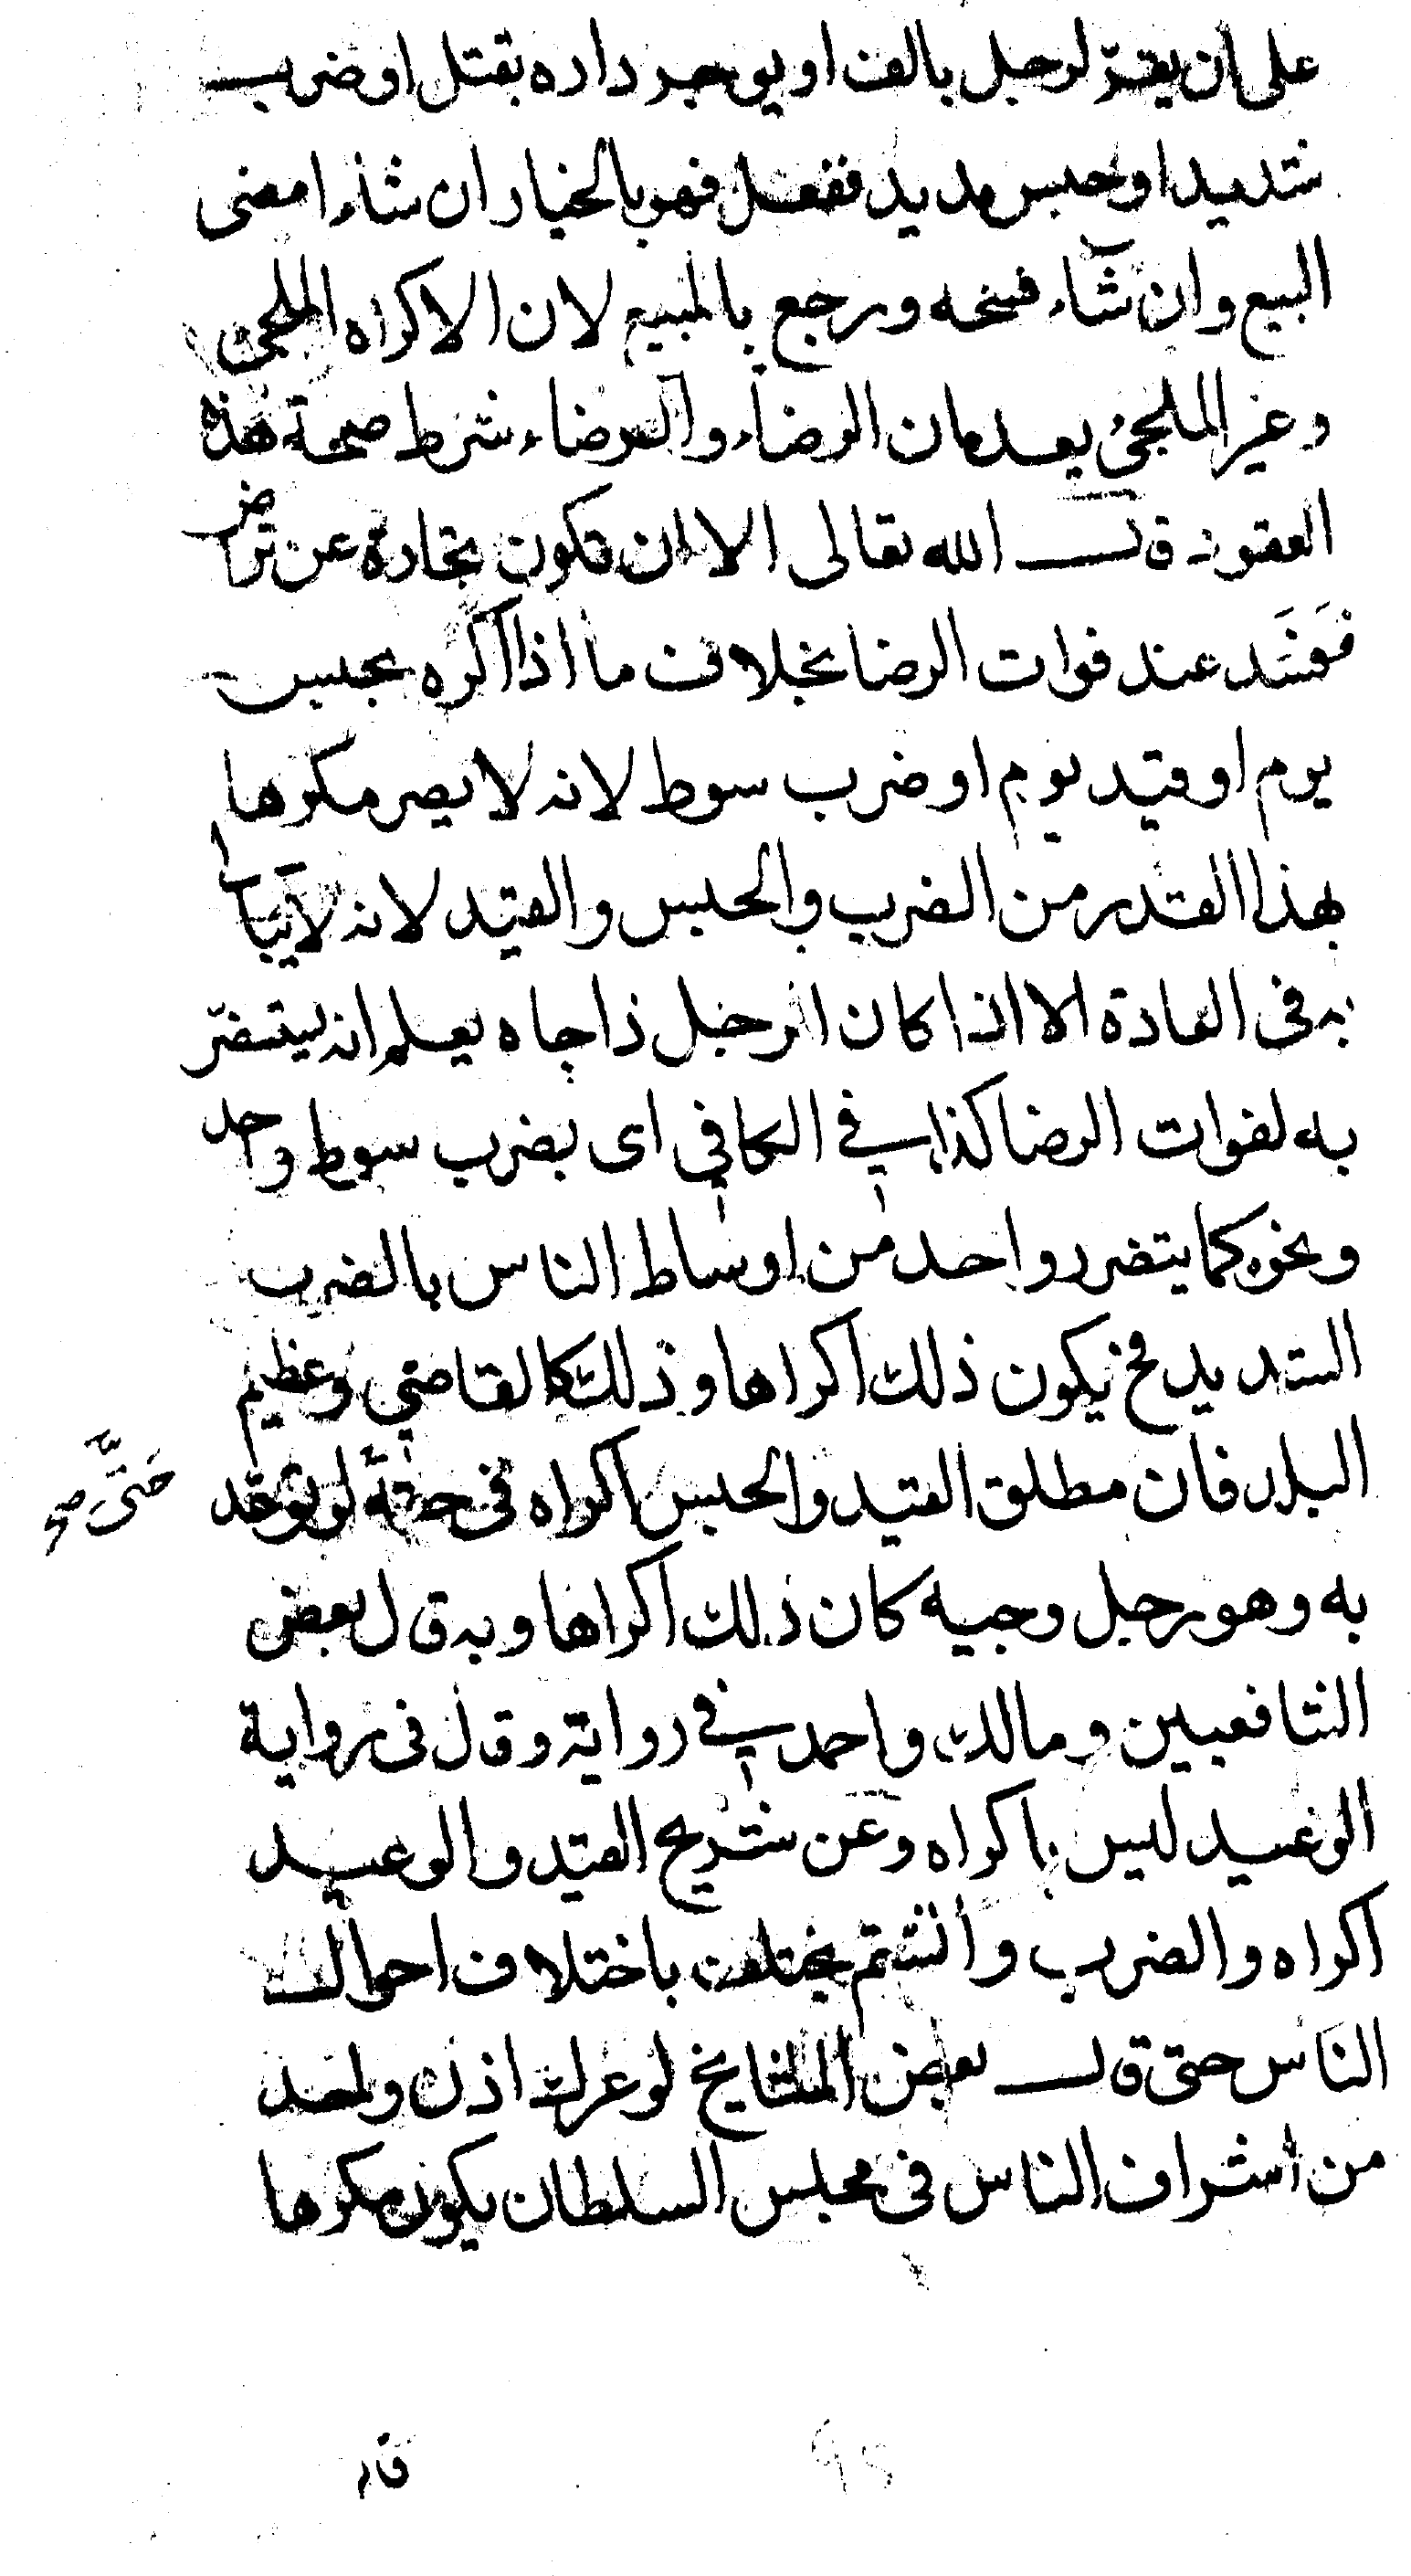 على ان يقرّ لرجل بالف او يوجر داره بقتل او ضرب
شديد او حبس مديد ففعل فهو بالخيار ان شاء امضى
البيع وان شآء فسخه ورجع بالمبيع لان الاكراه الملجئ
وغير الملجئ يعدمان الرضاء والرضاء شرط صحة هذه
العقود قال الله تعالى الا ان تكون تجارة عن تراض
فَفسَد عند فوات الرضا بخلاف ما اذا اكره بحبس
يوم او قيد يوم او ضرب سوط لانه لا يصير مكرها
بهذا القدر من الضرب والحبس والقيد لانه لا يبالى
به فى العادة الا اذا كان الرجل ذا جاه يعلم انه يتضرّر
به لفوات الرضا كذا في الكافي اى بضرب سوط واحد
ونحوه كما يتضرر واحد من اوساط الناس بالضرب
الشديد فح يكون ذلك اكراها وذلك كالقاضي وعظيم
البلد فان مطلق القيد والحبس اكراه فى حقه لو توعد
حتَّى صح
به وهو رجل وجيه كان ذلك اكراها وبه قال بعض
الشافعيين ومالك واحمد في رواية وقال فى رواية
الوعيد ليس باكراه وعن شريح القيد والوعيد
اكراه والضرب والشتم يختلف باختلاف احوال
الناس حتى قال بعض المشايخ لو عرك اذن واحد
من اشراف الناس فى مجلس السلطان يكون مكرها
قال